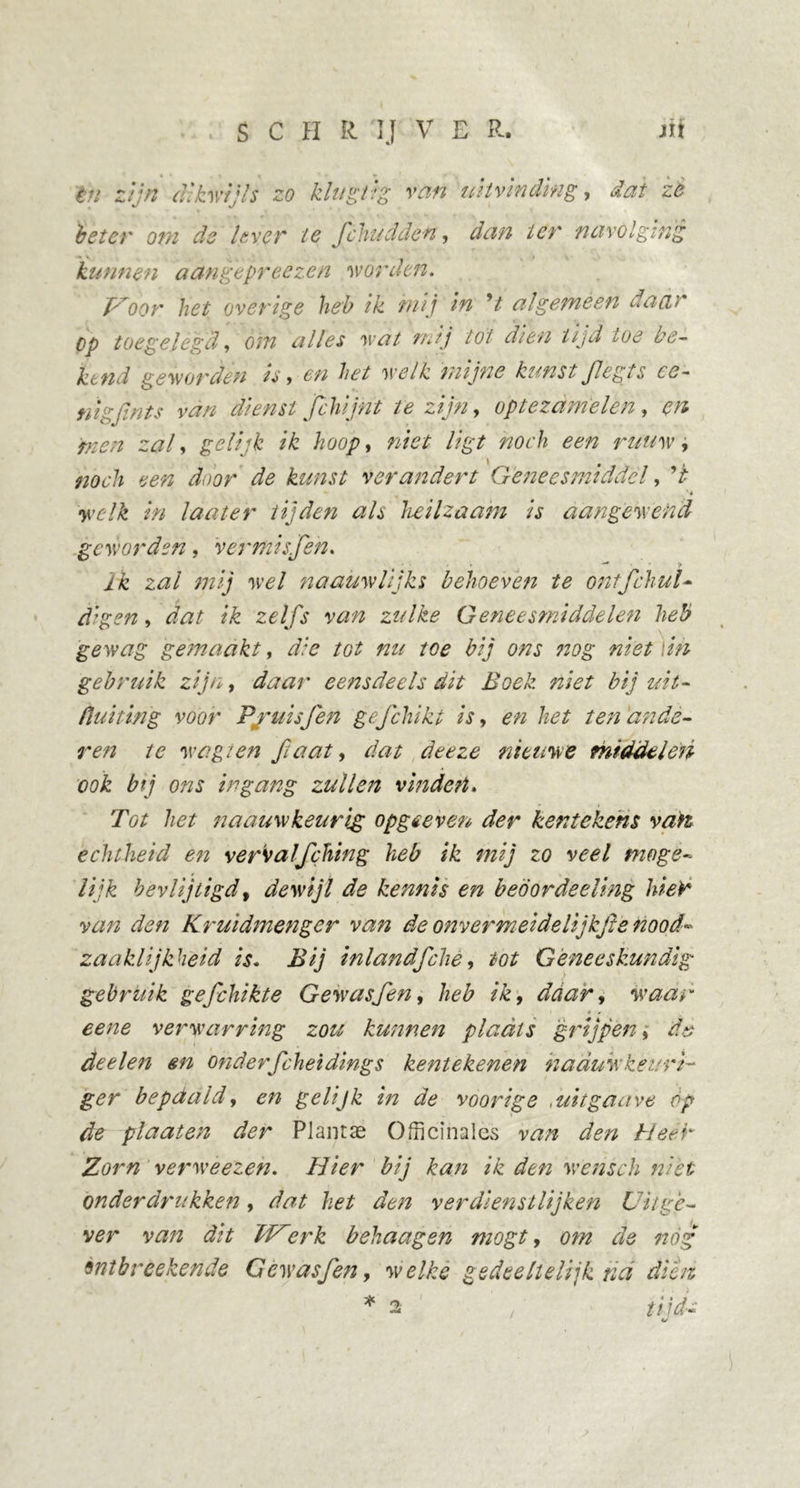 SCHRIJVER. III
en zijn dikwijls zo klugtig van uitvinding, dat ze
beter om de lever te ſchudden, dan ter navolging
kunnen aangepreezen worden.
Voor het overige heb ik mij in 't algemeen daar
op toegelegd, om alles wat mij tot dien tijd toe be-
kend geworden is, en het welk mijne kunst ſlegts ee-
nigſints van dienst ſchijnt te zijn, optezamelen, en
men zal, gelijk ik hoop, niet ligt noch een ruuw,
noch een door de kunst verandert Geneesmiddel, 't
welk in laater tijden als heilzaam is aangewend
geworden, vermisſen.
Ik zal mij wel naauwlijks behoeven te ontſchul-
digen, dat ik zelfs van zulke Geneesmiddelen heb
gewag gemaakt, die tot nu toe bij ons nog niet in
gebruik zijn, daar eensdeels dit Boek niet bij uit-
ſluiting voor Pruisſen geſchikt is, en het ten ande-
ren te wagten ſtaat, dat deeze nieuwe middelen
ook bij ons ingang zullen vinden.
Tot het naauwkeurig opgeeven der kentekens van
echtheid en vervalſching heb ik mij zo veel moge-
lijk bevlijtigd, dewijl de kennis en beöordeeling hier
van den Kruidmenger van de onvermeidelijkſte nood-
zaaklijkheid is. Bij inlandſche, tot Geneeskundig
gebruik geſchikte Gewasſen, heb ik, daar, waar
eene verwarring zou kunnen plaats grijpen, de
deelen en onderſcheidings kentekenen naauwkeuri-
ger bepaald, en gelijk in de voorige uitgaave op
de plaaten der Plantæ Officinales van den Heer
Zorn verweezen. Hier bij kan ik den wensch niet
onderdrukken, dat het den verdienstlijken Uitge-
ver van dit Werk behaagen mogt, om de nog
ontbreekende Gewasſen, welke gedeeltelijk na dien
* 2 tijd-